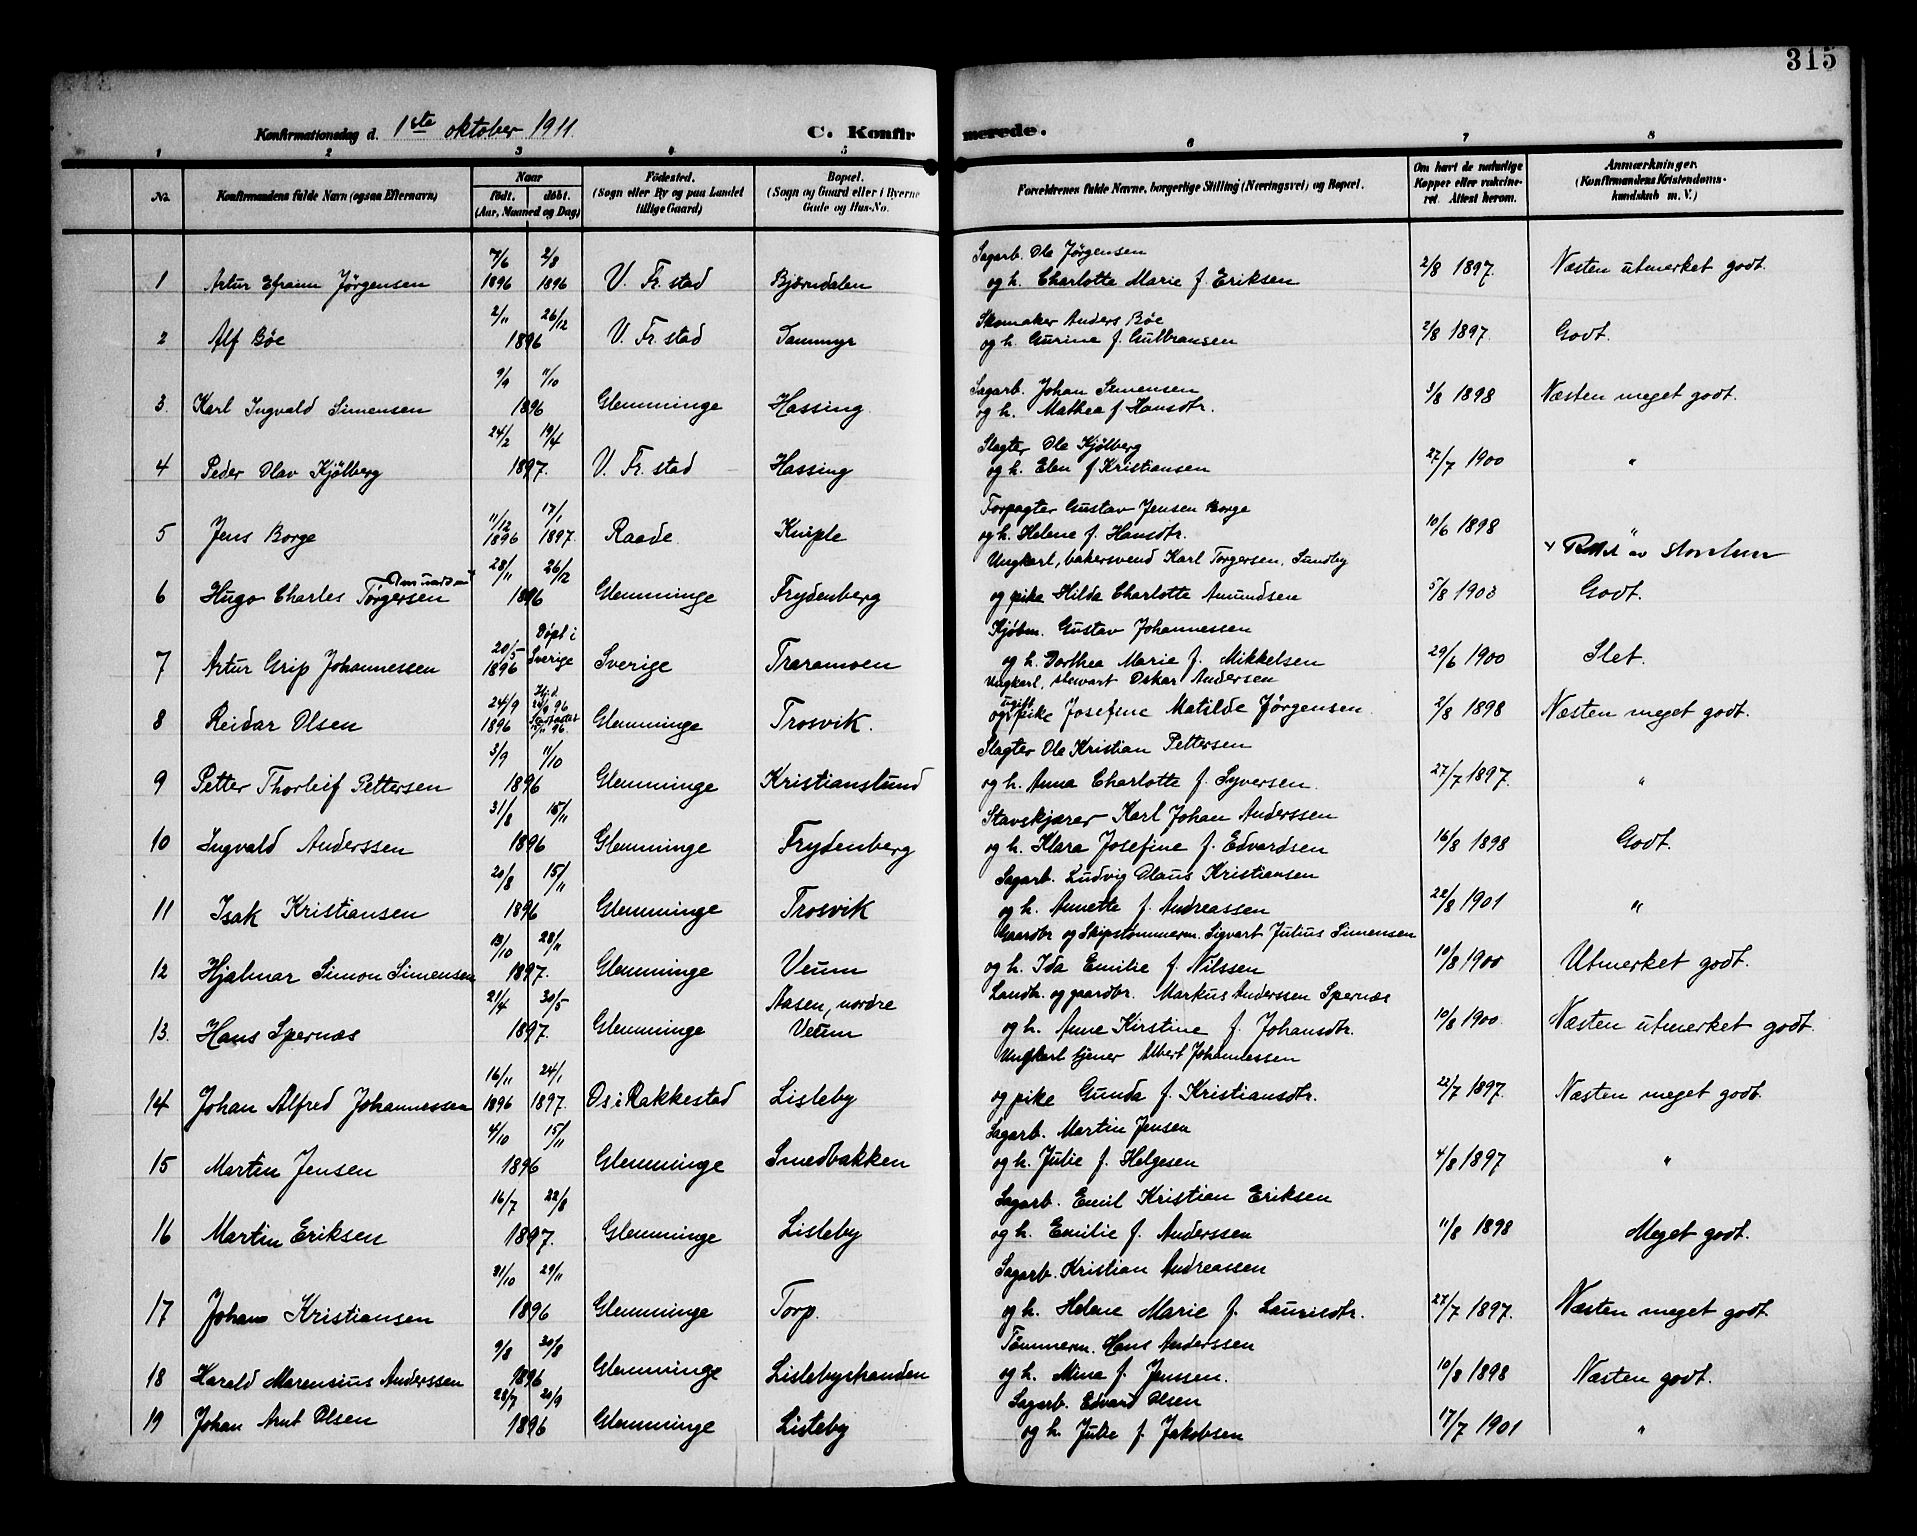 315
Konfirmationsdag d. 1ste oktober 1911. C. Konfir merede.
1 2 3 4 5 6 7 8
No. Konfirmandens fulde Navn (ogsaa Efternavn) Naar født. døbt. (Aar, Maaned og Dag) Fødested. (Sogn eller By og paa Landet tillige Gaard) Bopæl. (Sogn og Gaard eller i Byerne Gade og Hus-No. Forældrenes fulde Navne, borgerlige Stilling (Næringsvei) og Bopæl. Om havt de naturlige Kopper eller vakcineret. Attest herom. Anmærkninger. (Konfirmandens Kristendomskundskab m. V.)
7/6 2/8 Sagarb. Ole Jørgensen
1 Artur Efraim Jørgensen 1896 1896 V. Fr.stad Bjørndalen og h. Charlotte Marie f. Eriksen 2/8 1897. Næsten utmerket godt.
2/11 26/12 Skomaker Anders Bøe
2 Alf Bøe 1896 V. Fr.stad Dammyr og h. Gurine f. Gulbransen 2/8 1897. Godt.
9/9 11/10 Sagarb. Johan Simensen
3. Karl Ingvald Simensen 1896 Glemminge Hassing. og h. Mathea f. Hansdtr. 3/8 1898 Næsten meget godt.
24/2 19/4 Slagter Ole Kjølberg
4 Peder Olav Kjølberg 1897. V. Fr.stad Hassing og h. Elen f. Kristiansen 27/7 1900 "
11/12 17/1 Forpagter Gustav Jensen Borge
5 Jens Borge 1896 1897. Raade. Kniple og h. Helene f. Hansdtr. 10/6 1898 "
28/11 26/12 Ungkarl, bakersvend Karl Torgersen, Sundby
6 Hugo Charles Torgersen 1896 Glemminge Frydenberg og pike Hilda Charlotte Amundsen 5/8 1903 Godt.
20/5 Døpt i Kjøbm. Gustav Johannessen
7 Artur Grip Johannessen 1896 Sverige Sverige Traramoen og h. Dorthea Marie f. Mikkelsen 29/6 1900 Slet.
24/9 Hjd. Ungkarl, stewart Oskar Andersen
8 Reidar Olsen 1896 Glemminge Trosvik. og ugift pike Josefine Matilde Jørgensen. 2/8 1898 Næsten meget godt.
3/9 11/10 Slagter Ole Kristian Pettersen
9 Petter Thorleif Pettersen 1896 Glemminge Kristianslund og h. Anna Charlotte f. Syversen. 27/7 1897. "
31/8 15/11 Stavskjærer Karl Johan Anderssen
10 Ingvald Anderssen 1896 Glemminge Frydenberg og h. Klara Josefine f. Edvardsen 16/8 1898 Godt.
20/8 15/11 Sagarb. Ludvig Olaus Kristiansen
11 Isak Kristiansen 1896 Glemminge Trosvik og h. Annette f. Andreassen 22/8 1901 "
13/10 28/11 Gaardbr og Skipstømmerm. Sigvart Julius Simensen
12 Hjalmar Simon Simensen 1897. Glemminge Veum og h. Ida Emilie f. Nilssen 10/8 1900 Utmerket godt.
21/4 30/5 Aasen, nordre Landh. og gaardbr. Markus Anderssen Spernæs
13. Hans Spernæs 1897. Glemminge Veum og h. Anne Kirstine f. Johansdtr. 10/8 1900. Næsten utmerket godt.
16/11 24/1 Ungkarl tjener Albert Johannessen
14 Johan Alfred Johannessen 1896 1897. Os i Rakkestad Lisleby og pike Gunda f. Kristiansdtr. 22/7 1897. Næsten meget godt.
4/10 15/11 Sagarb. Martin Jensen
15 Martin Jensen 1896 Glemminge Smedbakken og h. Julie f. Helgesen 4/8 1897 "
16/7 22/8 Sagarb. Emil Kristian Eriksen
16 Martin Eriksen 1897. Glemminge Lisleby og h. Emilie f. Anderssen 11/8 1898 Meget godt.
31/10 29/11 Sagarb. Kristian Andreassen
17 Johans Kristiansen 1896 Glemminge Torp. og h. Helene Marie f. Lauritsdtr. 27/7 1897. Næsten meget godt
9/8 30/8 Tømmerm. Hans Anderssen
18 Harald Marensius Anderssen 1896 Glemminge Lislebystranden og h. Mina f. Jensen. 10/8 1898 Næsten godt.
28/7 20/9 Sagarb. Edvard Olsen
19 Johan Arnt Olsen 1896 Glemminge Lisleby og h. Julie f. Jakobsen 17/7 1901 "